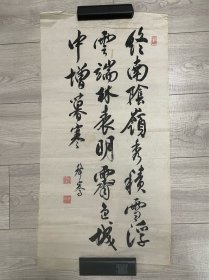 終南陰嶺秀積雪浮
雲端林表明霽色城
中增暮寒